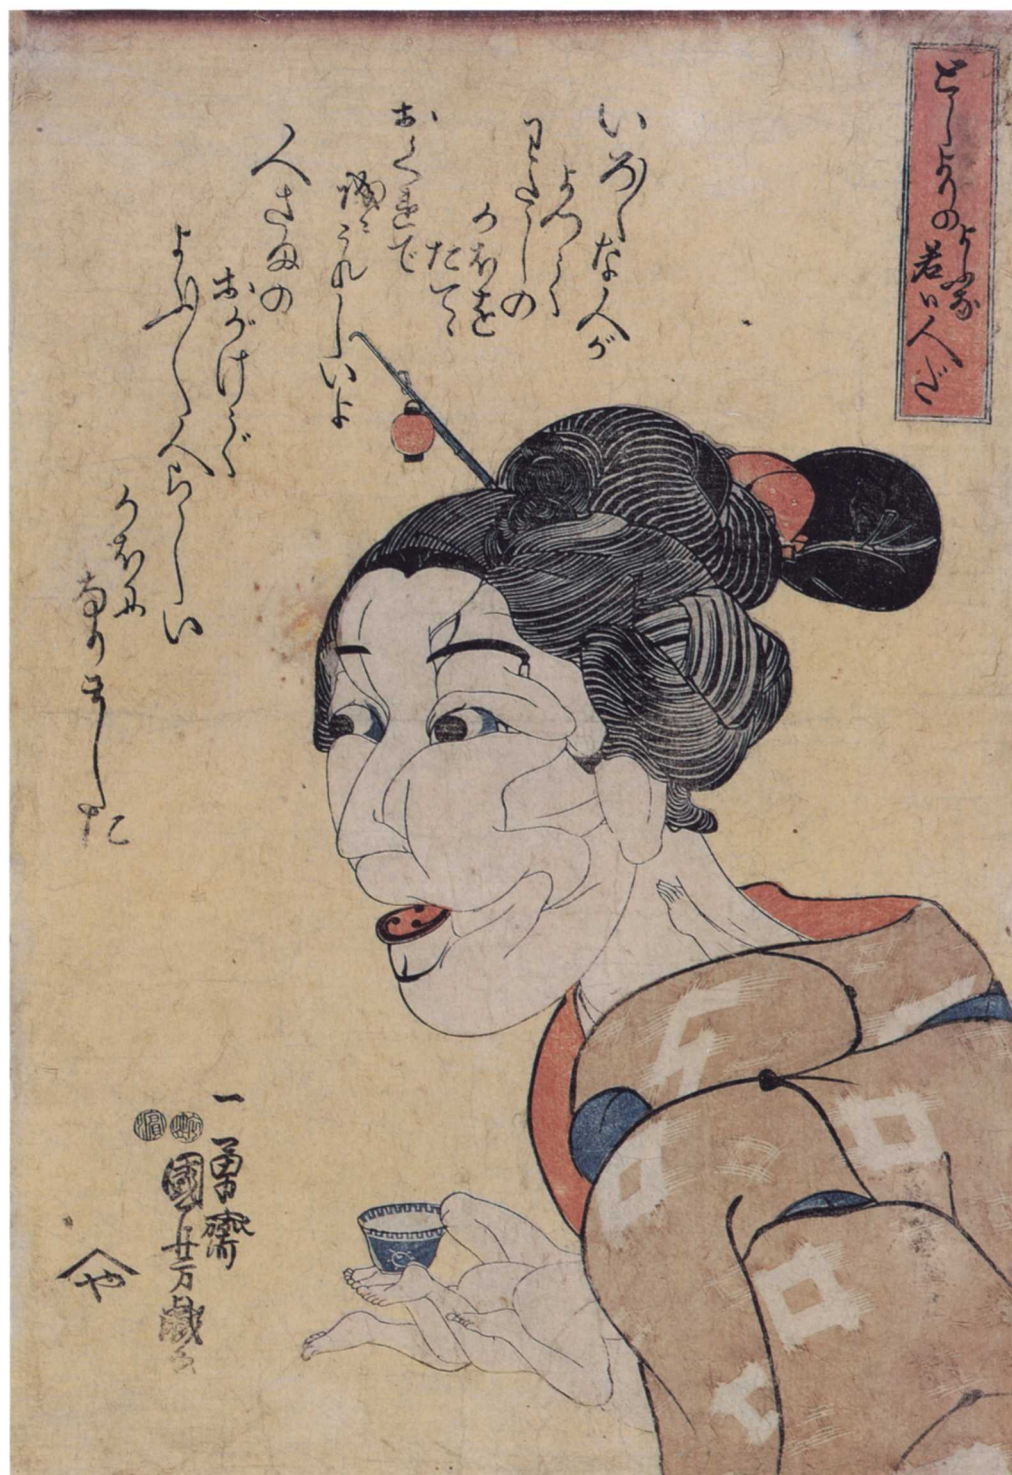 としよりの
よふな
若い人だ
いろ〱な人が
よつて
わたしの
かほを
たてゝ
おくれで
誠にうれしいよ
人さまの
おかげで
よふ〱人らしい
かほに
なりました
一勇齋
國芳戯画
や